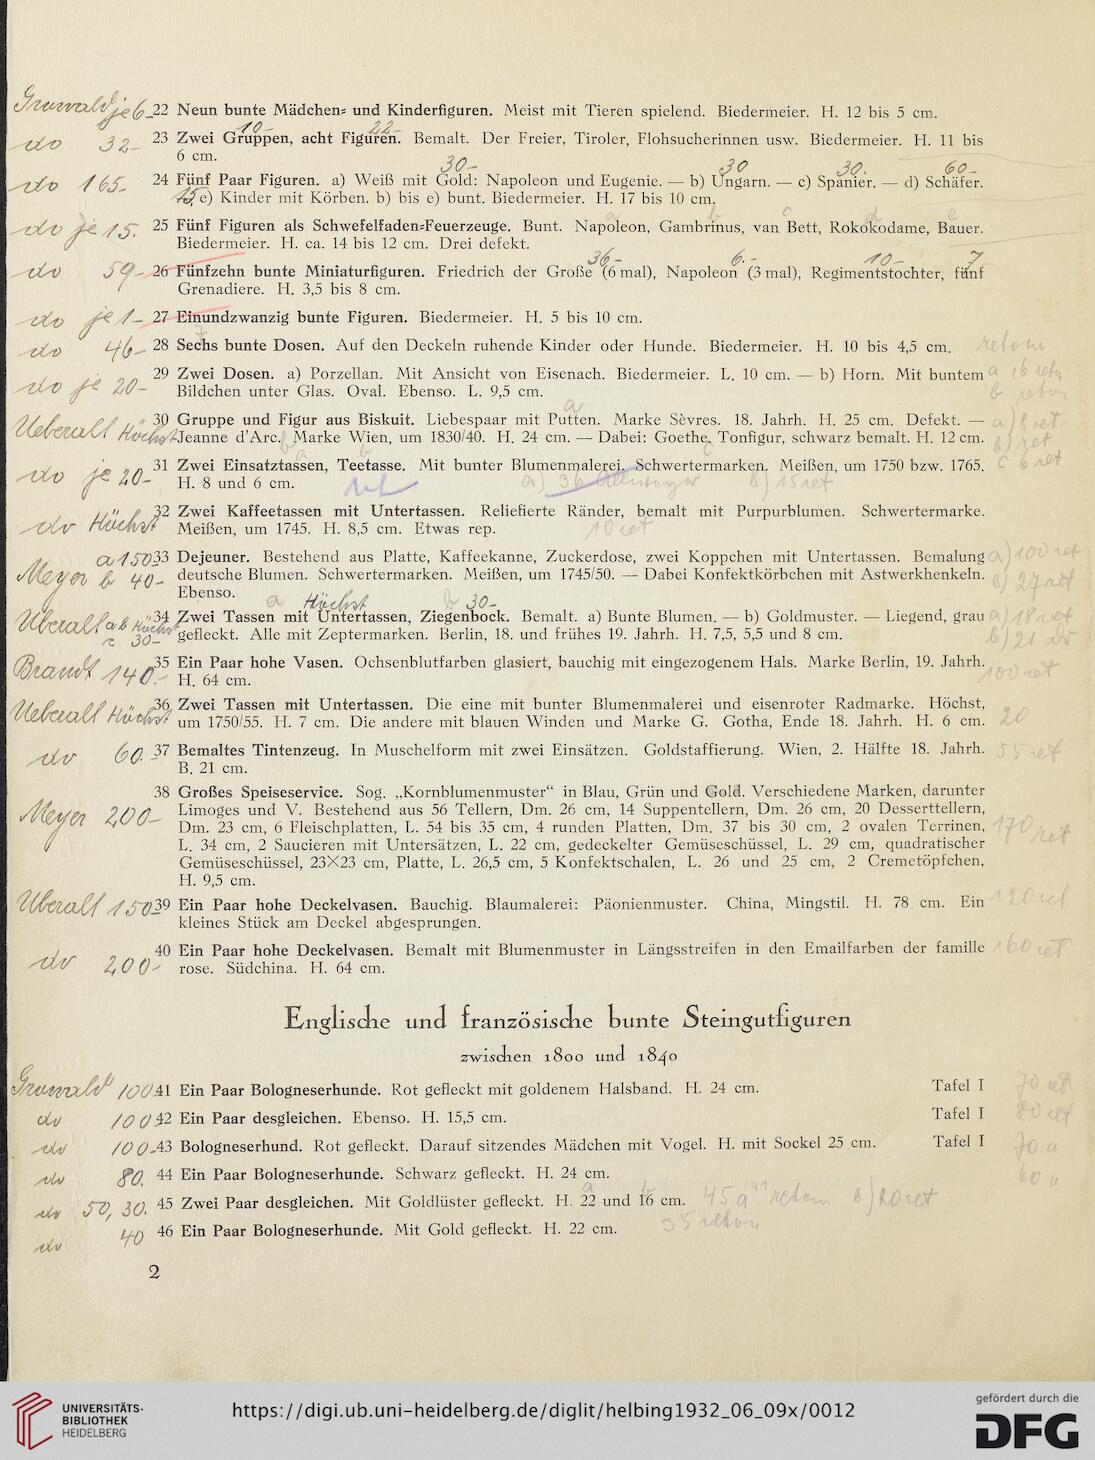 Grunwald je 6- 22 Neun bunte Mädchen= und Kinderfiguren. Meist mit Tieren spielend. Biedermeier. H. 12 bis 5 cm.
10- 22-
do 32- 23 Zwei Gruppen, acht Figuren. Bemalt. Der Freier, Tiroler, Flohsucherinnen usw. Biedermeier. H. 11 bis
6 cm.
30- 30 30. 60-
do 165- 24 Fünf Paar Figuren. a) Weiß mit Gold: Napoleon und Eugenie. — b) Ungarn. — c) Spanier. — d) Schäfer.
15 e) Kinder mit Körben. b) bis e) bunt. Biedermeier. H. 17 bis 10 cm.
a b c d e
do je 15. 25 Fünf Figuren als Schwefelfaden=Feuerzeuge. Bunt. Napoleon, Gambrinus, van Bett, Rokokodame, Bauer.
Biedermeier. H. ca. 14 bis 12 cm. Drei defekt.
36- 6.- 10- 7
do 59- 26 Fünfzehn bunte Miniaturfiguren. Friedrich der Große (6 mal), Napoleon (3 mal), Regimentstochter, fünf
Grenadiere. H. 3,5 bis 8 cm.
do je 1- 27 Einundzwanzig bunte Figuren. Biedermeier. H. 5 bis 10 cm.
7
do 46- 28 Sechs bunte Dosen. Auf den Deckeln ruhende Kinder oder Hunde. Biedermeier. H. 10 bis 4,5 cm. retour
do je 20- 29 Zwei Dosen. a) Porzellan. Mit Ansicht von Eisenach. Biedermeier. L. 10 cm. — b) Horn. Mit buntem a 16 retn
Bildchen unter Glas. Oval. Ebenso. L. 9,5 cm. b retour
a
Ueberall Höchst 30 Gruppe und Figur aus Biskuit. Liebespaar mit Putten. Marke Sèvres. 18. Jahrh. H. 25 cm. Defekt. — a) 8 ret
Jeanne d'Arc. Marke Wien, um 1830/40. H. 24 cm. — Dabei: Goethe, Tonfigur, schwarz bemalt. H. 12 cm. b) ret
a b c c 6 ret
do je 20- 31 Zwei Einsatztassen, Teetasse. Mit bunter Blumenmalerei. Schwertermarken. Meißen, um 1750 bzw. 1765.
H. 8 und 6 cm. ret a) 36 b) 15 ret
do Höchst 32 Zwei Kaffeetassen mit Untertassen. Reliefierte Ränder, bemalt mit Purpurblumen. Schwertermarke.
Meißen, um 1745. H. 8,5 cm. Etwas rep. 10 ret
a 150 33 Dejeuner. Bestehend aus Platte, Kaffeekanne, Zuckerdose, zwei Koppchen mit Untertassen. Bemalung a) 100 ret
Meyer b 40- deutsche Blumen. Schwertermarken. Meißen, um 1745/50. — Dabei Konfektkörbchen mit Astwerkhenkeln. b) 27 ret
Ebenso.
a Höchst b 30-
Uberall a b Höchst 34 Zwei Tassen mit Untertassen, Ziegenbock. Bemalt. a) Bunte Blumen. — b) Goldmuster. — Liegend, grau a) 18 ret
c 30- gefleckt. Alle mit Zeptermarken. Berlin, 18. und frühes 19. Jahrh. H. 7,5, 5,5 und 8 cm. b) 21 do
Brandt 140.- 35 Ein Paar hohe Vasen. Ochsenblutfarben glasiert, bauchig mit eingezogenem Hals. Marke Berlin, 19. Jahrh.
H. 64 cm. 100 ret
Ueberall Höchst 36 Zwei Tassen mit Untertassen. Die eine mit bunter Blumenmalerei und eisenroter Radmarke. Höchst,
um 1750/55. H. 7 cm. Die andere mit blauen Winden und Marke G. Gotha, Ende 18. Jahrh. H. 6 cm. 20
do 60.- 37 Bemaltes Tintenzeug. In Muschelform mit zwei Einsätzen. Goldstaffierung. Wien, 2. Hälfte 18. Jahrh. 55 ret
B. 21 cm.
38 Großes Speiseservice. Sog. „Kornblumenmuster“ in Blau, Grün und Gold. Verschiedene Marken, darunter
Meyer 200- Limoges und V. Bestehend aus 56 Tellern, Dm. 26 cm, 14 Suppentellern, Dm. 26 cm, 20 Desserttellern,
Dm. 23 cm, 6 Fleischplatten, L. 54 bis 35 cm, 4 runden Platten, Dm. 37 bis 30 cm, 2 ovalen Terrinen, 170 ret
L. 34 cm, 2 Saucieren mit Untersätzen, L. 22 cm, gedeckelter Gemüseschüssel, L. 29 cm, quadratischer
Gemüseschüssel, 23×23 cm, Platte, L. 26,5 cm, 5 Konfektschalen, L. 26 und 25 cm, 2 Cremetöpfchen,
H. 9,5 cm.
Uberall 150 39 Ein Paar hohe Deckelvasen. Bauchig. Blaumalerei: Päonienmuster. China, Mingstil. H. 78 cm. Ein 120 ret
kleines Stück am Deckel abgesprungen.
do 200- 40 Ein Paar hohe Deckelvasen. Bemalt mit Blumenmuster in Längsstreifen in den Emailfarben der famille 160 ret
rose. Südchina. H. 64 cm.
Englische und französische bunte Steingutfiguren
zwischen 1800 und 1840
Grunwald 100 41 Ein Paar Bologneserhunde. Rot gefleckt mit goldenem Halsband. H. 24 cm. Tafel I 70 ret
do 100 42 Ein Paar desgleichen. Ebenso. H. 15,5 cm. Tafel I 80 ret
do 100- 43 Bologneserhund. Rot gefleckt. Darauf sitzendes Mädchen mit Vogel. H. mit Sockel 25 cm. Tafel I 70 "
do 80. 44 Ein Paar Bologneserhunde. Schwarz gefleckt. H. 24 cm. 60 "
a b
do 50, 30. 45 Zwei Paar desgleichen. Mit Goldlüster gefleckt. H. 22 und 16 cm. 45 a retour b) 20 ret
do 40 46 Ein Paar Bologneserhunde. Mit Gold gefleckt. H. 22 cm. 35 retour
2
UNIVERSITÄTS-
BIBLIOTHEK
HEIDELBERG
https://digi.ub.uni-heidelberg.de/diglit/helbing1932_06_09x/0012
gefördert durch die
DFG